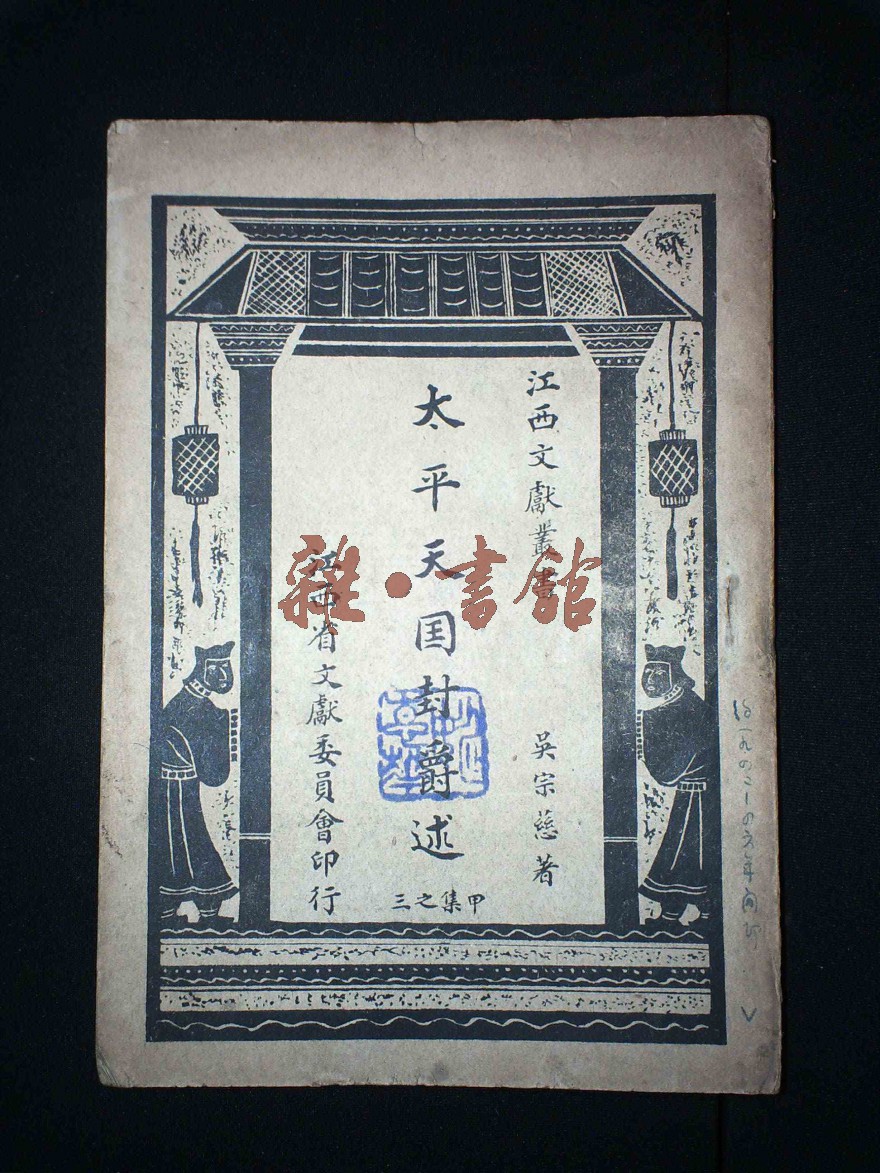 江西文獻叢書
吳宗慈著
太平天囯封爵述
甲集之三
江西省文獻委員會印行
雜·書館